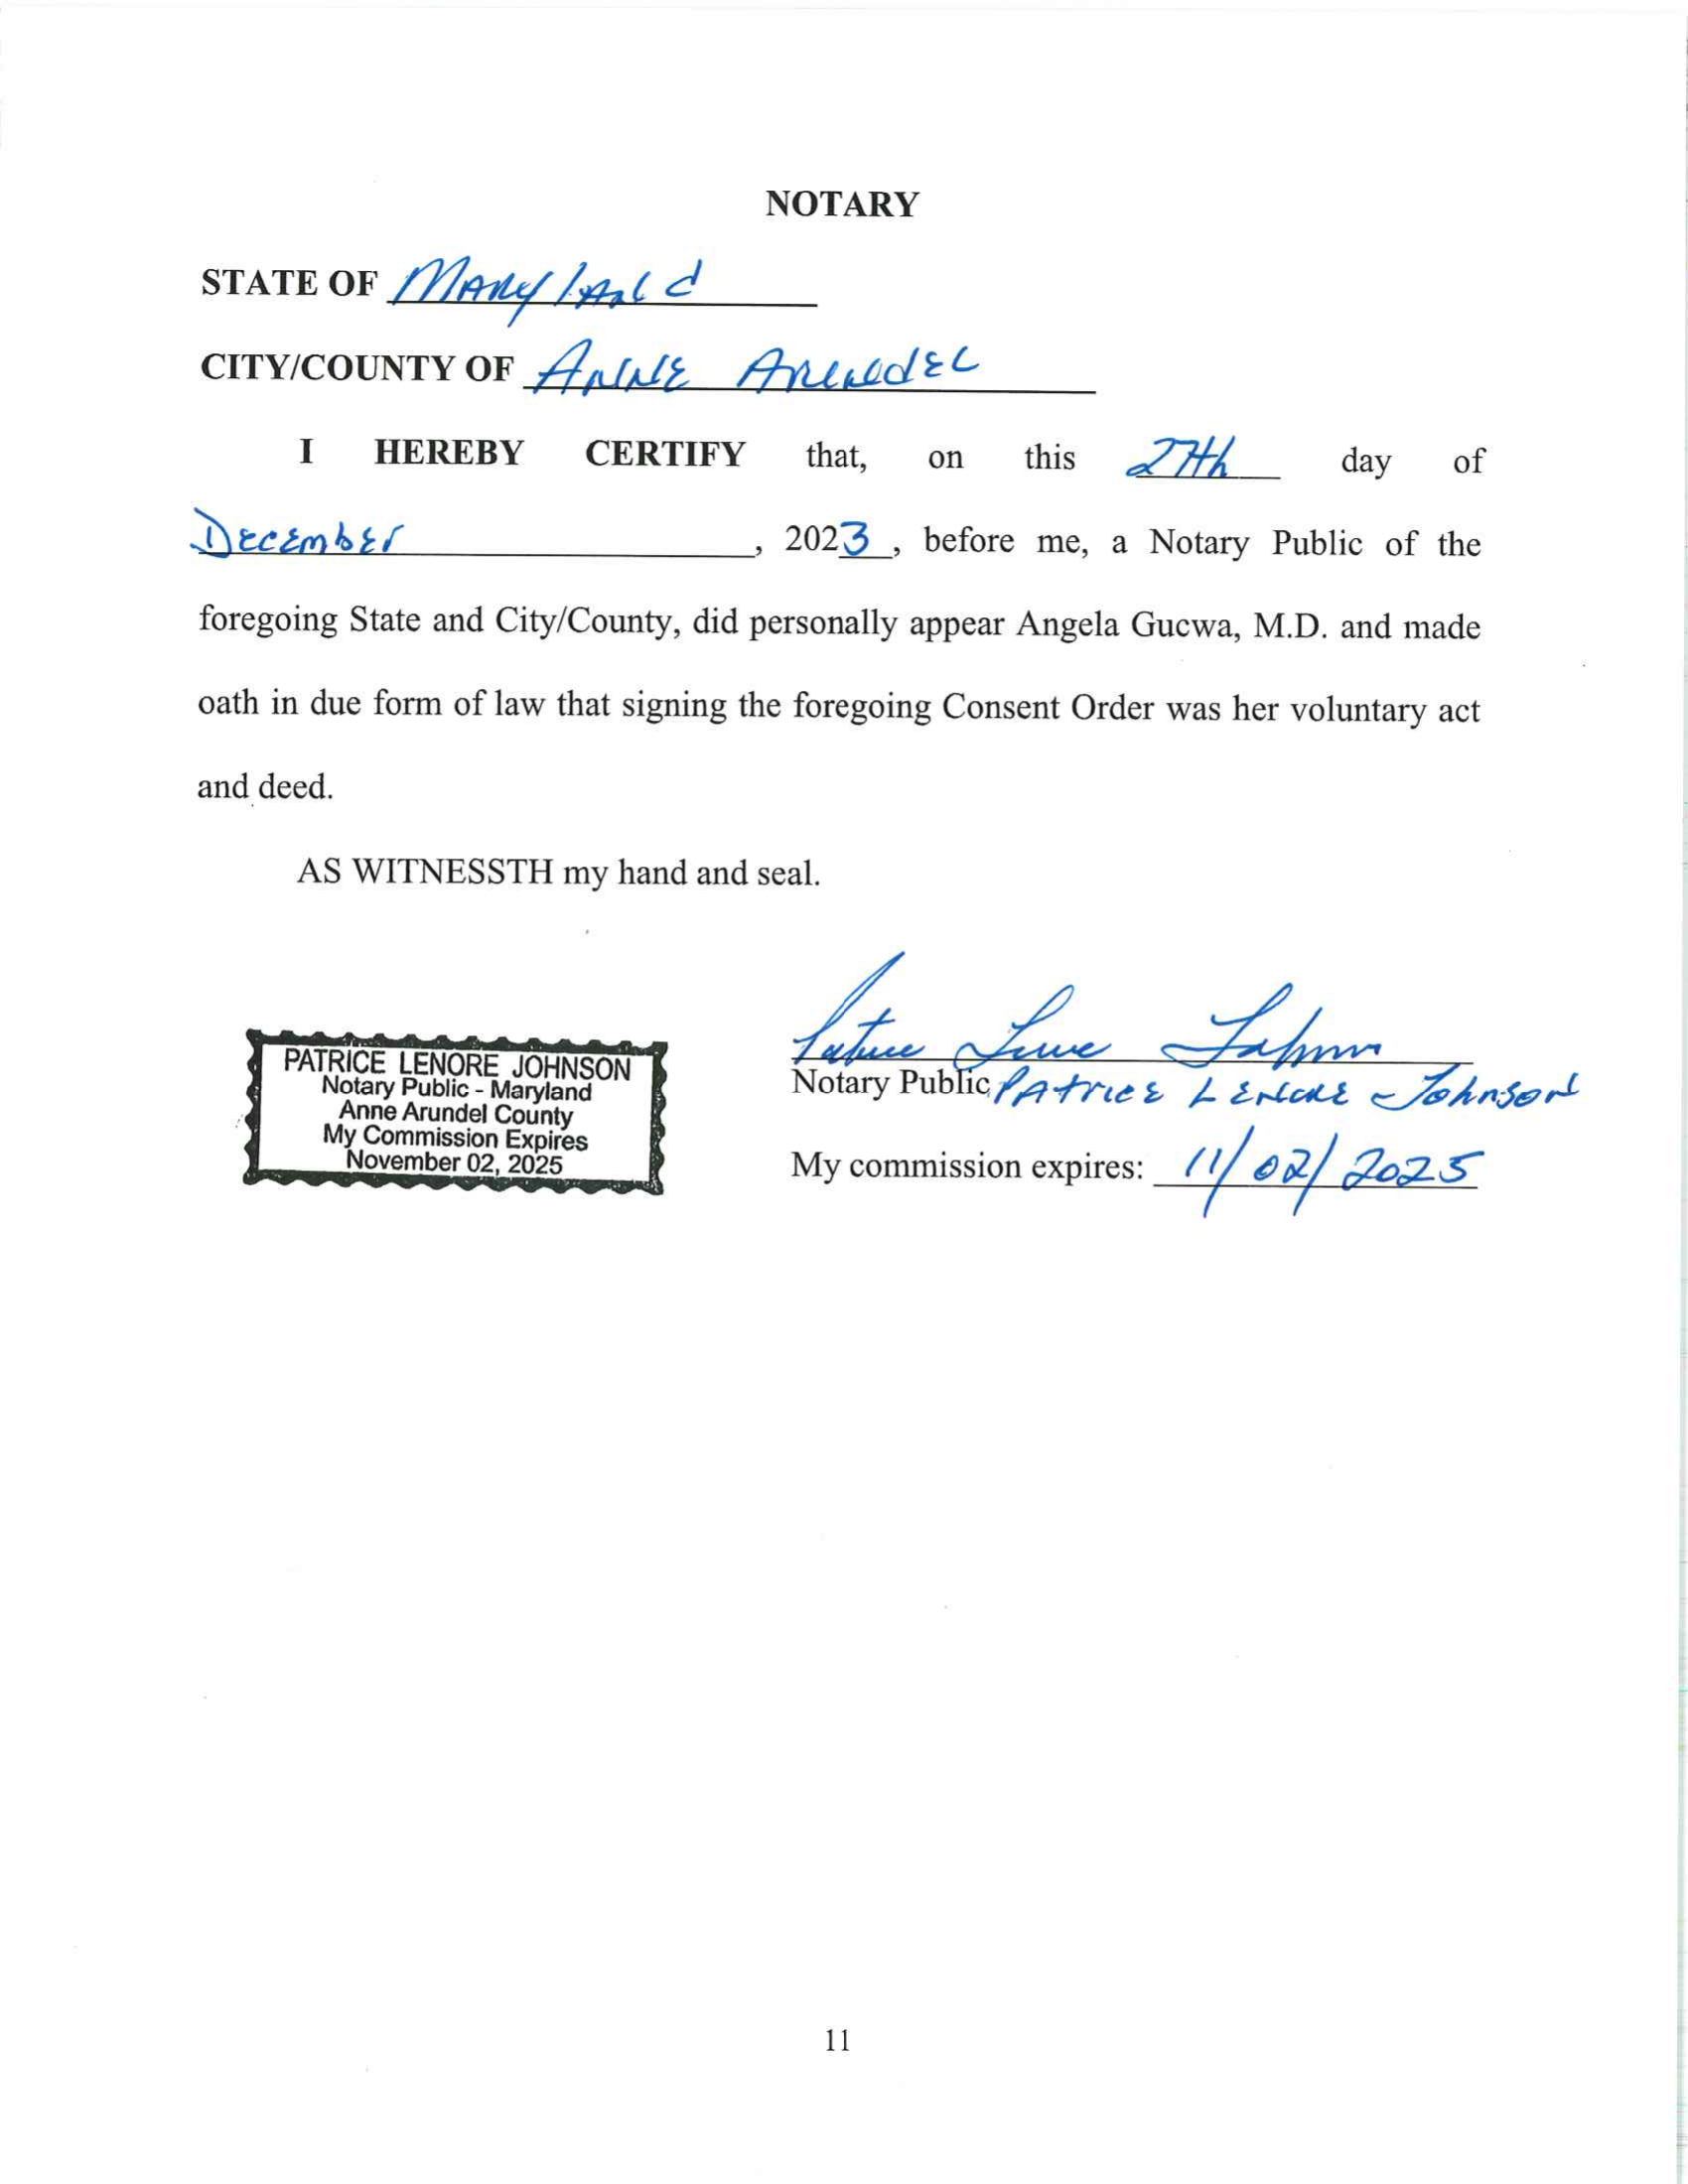 NOTARY
STATE OF Maryland
CITY/COUNTY OF Anne Arundel
I HEREBY CERTIFY that, on this 27th day of
December, 2023, before me, a Notary Public of the
foregoing State and City/County, did personally appear Angela Gucwa, M.D. and made
oath in due form of law that signing the foregoing Consent Order was her voluntary act
and deed.
AS WITNESSTH my hand and seal.
PATRICE LENORE JOHNSON
Notary Public - Maryland
Anne Arundel County
My Commission Expires
November 02, 2025
Patrice Lenore Johnson
Notary Public Patrice Lenore Johnson
My commission expires: 11/02/2025
11